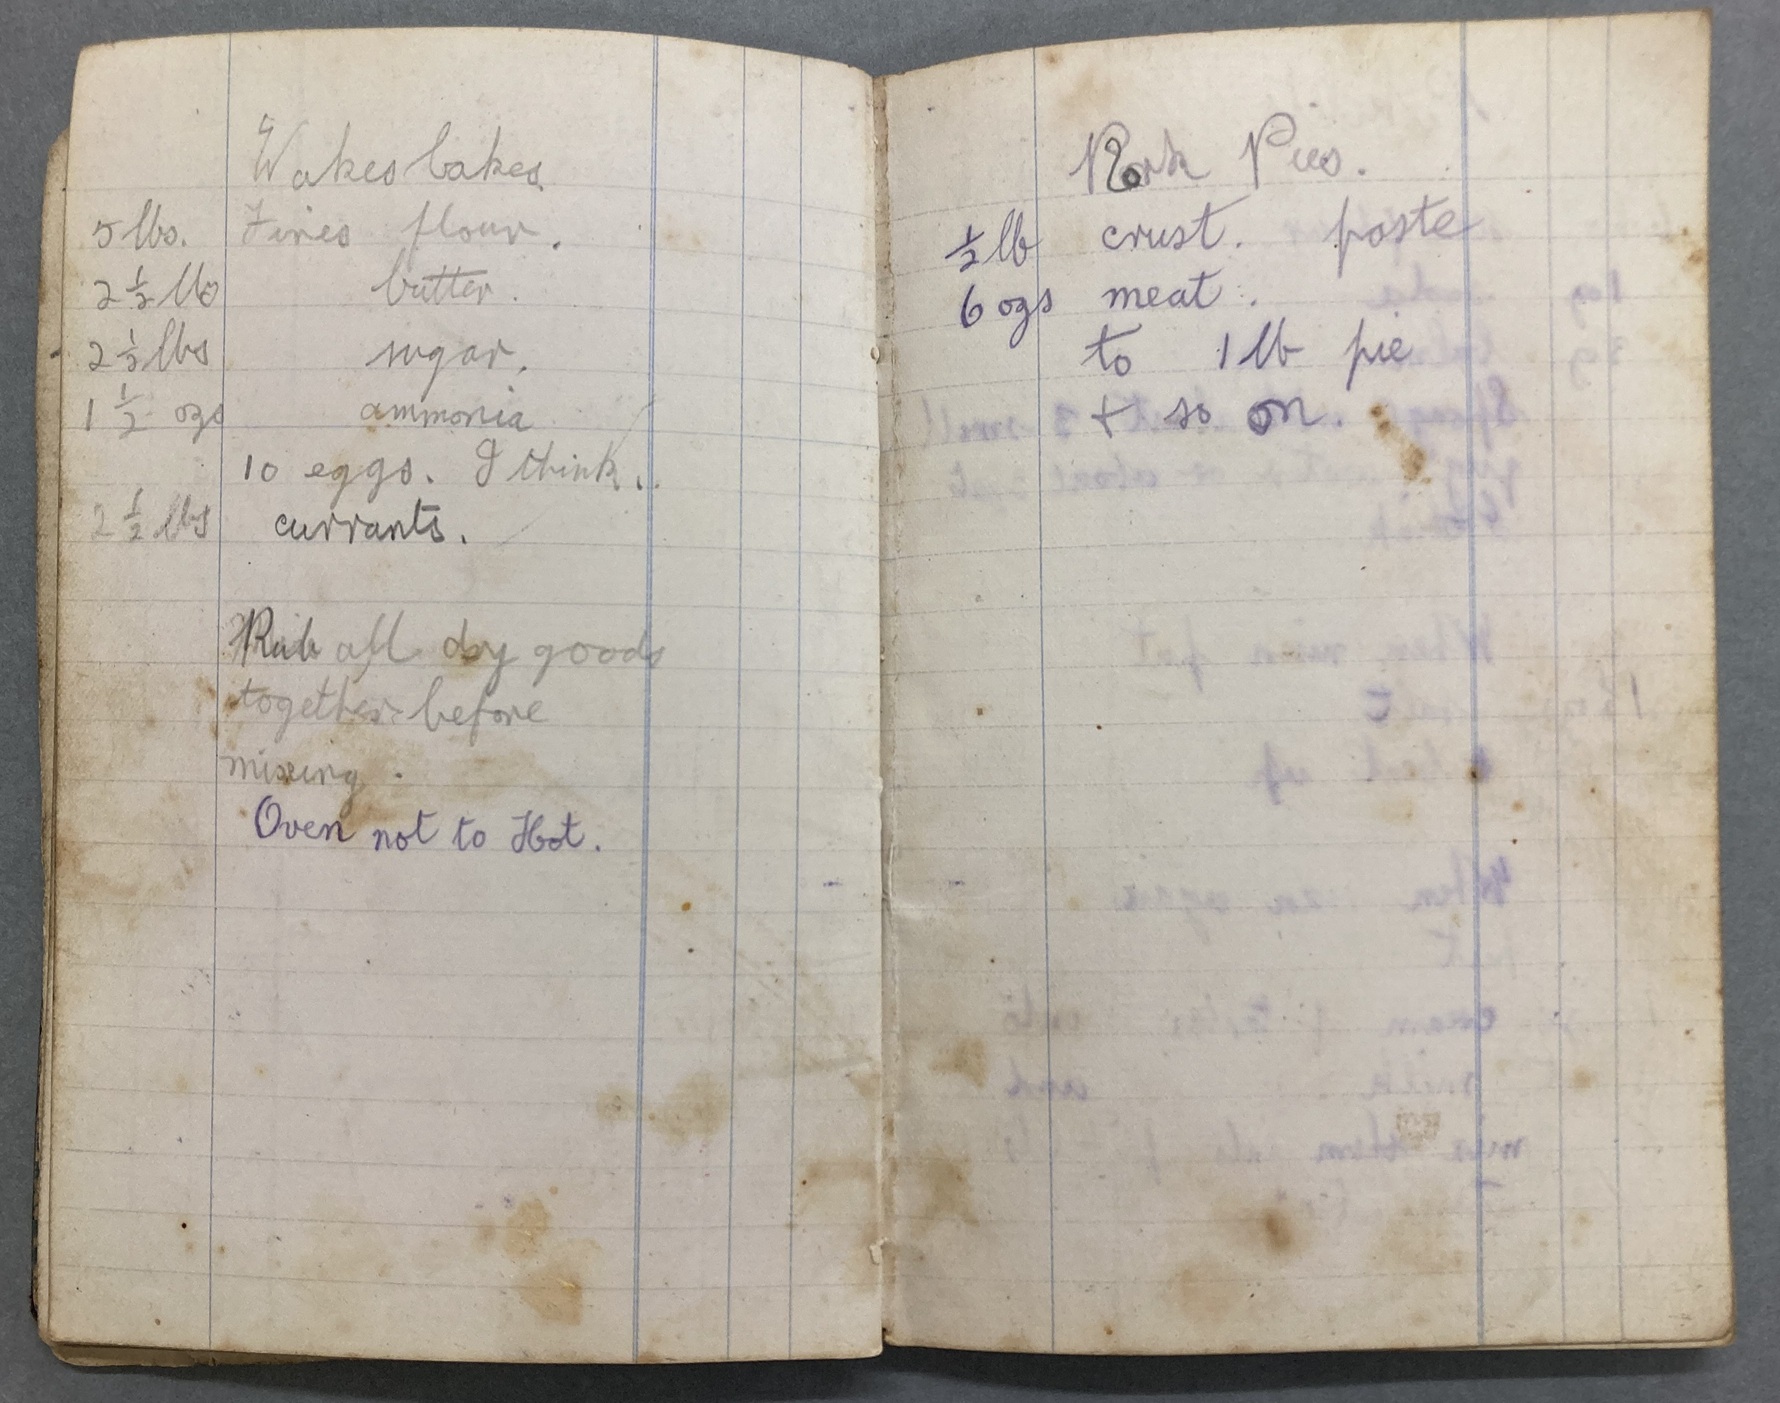 Wakes Cakes
5 lbs. Fines flour.
2 1/2 lbs butter.
2 1/2 lbs sugar.
1 1/2 ozs ammonia
10 eggs. I think..
2 1/2 lbs currants.
Rub all dry goods
together before
mixing.
Oven not to Hot.
Pork Pies.
1/2 lb crust. paste
6 ozs meat.
to 1 lb pie
+ so on.